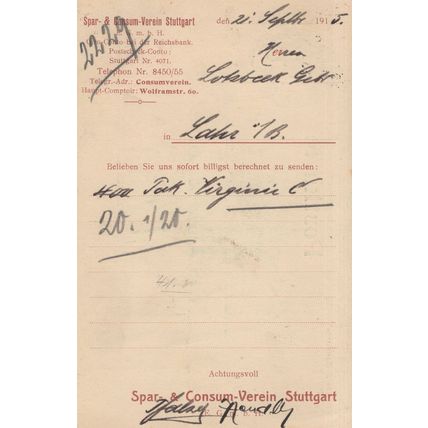 Spar- & Consum-Verein Stuttgart
m. b. H.
Giro-Conto bei der Reichsbank.
Postscheck-Conto:
Stuttgart Nr. 4071.
Telephon Nr. 8450/55
Telegr.-Adr.: Consumverein.
Haupt-Comptoir: Wolframstr. 60.
2229
den 2. Septbr. 1915.
Herren
Lotzbeck Gebr.
in Lahr i/B.
Belieben Sie uns sofort billigst berechnet zu senden:
400 Pak. Virginie C
20. 1/20.
Achtungsvoll
Spar- & Consum-Verein Stuttgart